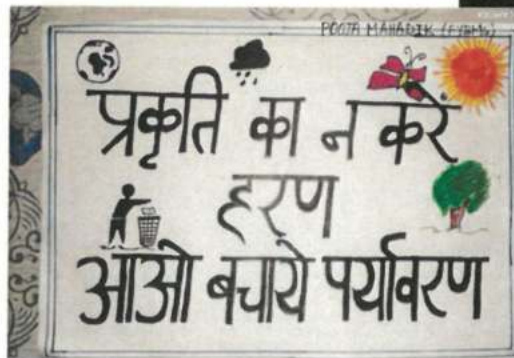 POOJA MAHADIK (FYBMS)
प्रकृति का न करें
हरण
आओ बचाये पर्यावरण